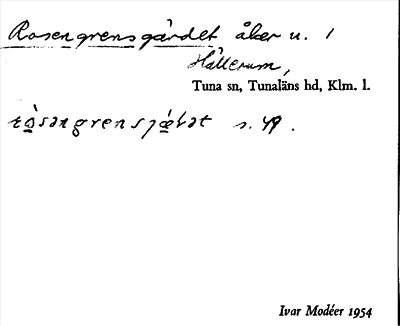 Rosengrensgärdet åker u. 1
Hällerum,
Tuna sn, Tunaläns hd, Klm. l.
s. 49.
Ivar Modéer 1954